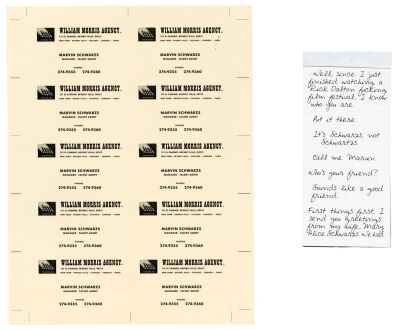 WILLIAM MORRIS AGENCY.
151 EL CAMINO, BEVERLY HILLS,
NEW YORK · BEVERLY HILLS · CHICAGO · LONDON ·
MARVIN SCHWARZS
MANAGER - TALENT AGENT
PHONE
274-9355 274-9360
WILLIAM MORRIS AGENCY.
151 EL CAMINO, BEVERLY HILLS,
NEW YORK · BEVERLY HILLS · CHICAGO · LONDON ·
MARVIN SCHWARZS
MANAGER - TALENT AGENT
PHONE
274-9355 274-9360
WILLIAM MORRIS AGENCY.
151 EL CAMINO, BEVERLY HILLS,
NEW YORK · BEVERLY HILLS · CHICAGO · LONDON ·
MARVIN SCHWARZS
MANAGER - TALENT AGENT
PHONE
274-9355 274-9360
WILLIAM MORRIS AGENCY.
151 EL CAMINO, BEVERLY HILLS,
NEW YORK · BEVERLY HILLS · CHICAGO · LONDON ·
MARVIN SCHWARZS
MANAGER - TALENT AGENT
PHONE
274-9355 274-9360
WILLIAM MORRIS AGENCY.
151 EL CAMINO, BEVERLY HILLS,
NEW YORK · BEVERLY HILLS · CHICAGO · LONDON ·
MARVIN SCHWARZS
MANAGER - TALENT AGENT
PHONE
274-9355 274-9360
WILLIAM MORRIS AGENCY.
151 EL CAMINO, BEVERLY HILLS,
NEW YORK · BEVERLY HILLS · CHICAGO · LONDON ·
MARVIN SCHWARZS
MANAGER - TALENT AGENT
PHONE
274-9355 274-9360
WILLIAM MORRIS AGENCY.
151 EL CAMINO, BEVERLY HILLS,
NEW YORK · BEVERLY HILLS · CHICAGO · LONDON ·
MARVIN SCHWARZS
MANAGER - TALENT AGENT
PHONE
274-9355 274-9360
WILLIAM MORRIS AGENCY.
151 EL CAMINO, BEVERLY HILLS,
NEW YORK · BEVERLY HILLS · CHICAGO · LONDON ·
MARVIN SCHWARZS
MANAGER - TALENT AGENT
PHONE
274-9355 274-9360
WILLIAM MORRIS AGENCY.
151 EL CAMINO, BEVERLY HILLS,
NEW YORK · BEVERLY HILLS · CHICAGO · LONDON ·
MARVIN SCHWARZS
MANAGER - TALENT AGENT
PHONE
274-9355 274-9360
WILLIAM MORRIS AGENCY.
151 EL CAMINO, BEVERLY HILLS,
NEW YORK · BEVERLY HILLS · CHICAGO · LONDON ·
MARVIN SCHWARZS
MANAGER - TALENT AGENT
PHONE
274-9355 274-9360
Well, since I just
finished watching a
Rick Dalton fucking
film festival, I know
who you are.
Put it there
It's Schwarzs, not
Schwartzs.
Call me Marvin.
Who's your friend?
Sounds like a good
friend.
First things first. I
send you greetings
from my wife, Mary
Alice Schwarzs we had